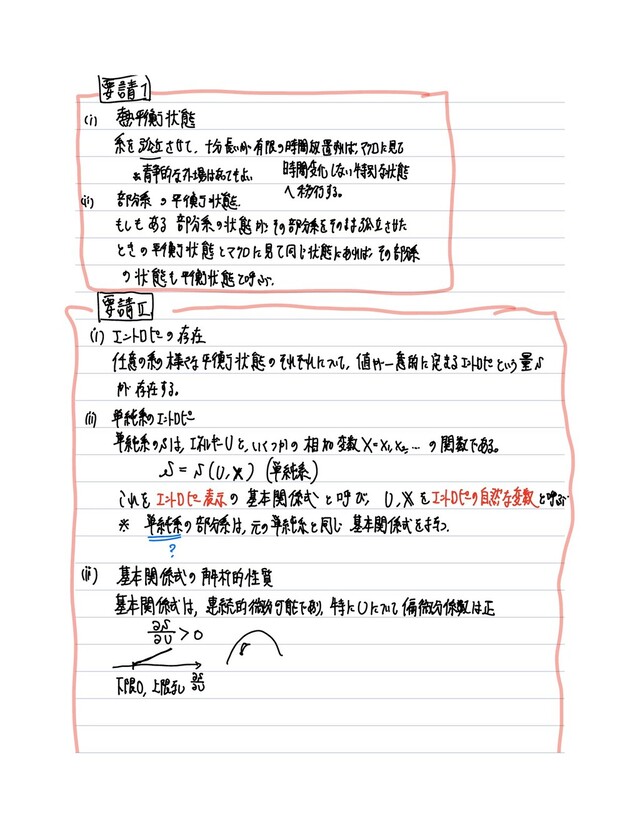 要請1
(i) 熱平衡状態
系を孤立させて、十分長いが有限の時間放置すれば、マクロに見て
※静的な外場はあってもよい 時間変化しない特別な状態
へ移行する。
(ii) 部分系の平衡状態.
もしもある部分系の状態が、その部分系をそのまま孤立させた
ときの平衡状態とマクロに見て同じ状態にあれば、その部分系
の状態も平衡状態と呼ぶ.
要請Ⅱ
(i) エントロピーの存在
任意の系の様々な平衡状態のそれぞれについて、値が一意的に定まるエントロピーという量S
が存在する。
(ii) 単純系のエントロピー
単純系のSは、エネルギーUと、いくつかの相加変数X=X₁,X₂,… の関数である。
S = S(U,X) (単純系)
これをエントロピー表示の基本関係式と呼び、U,Xをエントロピーの自然な変数と呼ぶ
※ 単純系の部分系は、元の単純系と同じ基本関係式をもつ.
?
(ii) 基本関係式の解析的性質
基本関係式は、連続的微分可能であり、特にUについて偏微分係数は正
∂S/∂U > 0
S
下限0, 上限なし ∂S/∂U